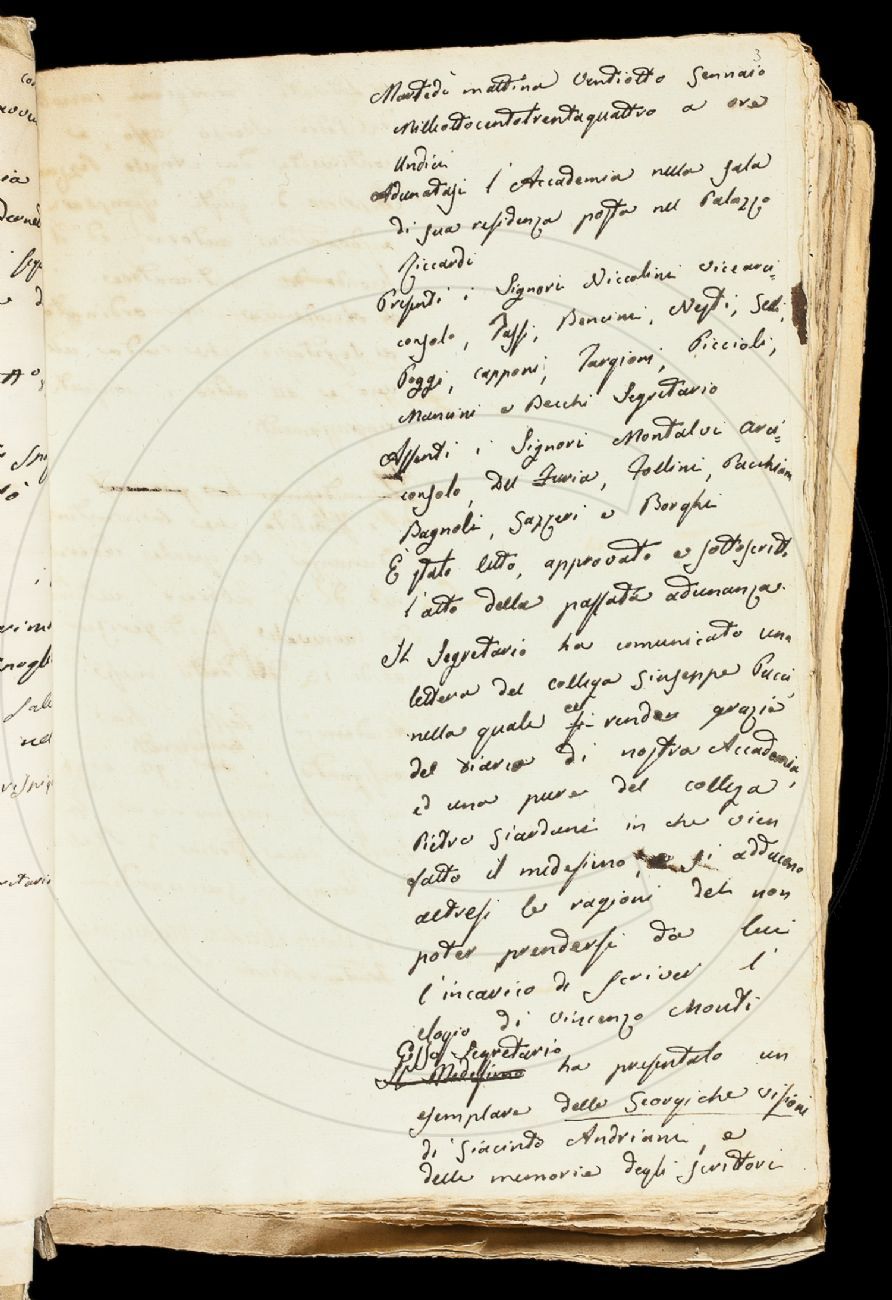 3
Martedì mattina Ventiotto Gennaio
Milleottocentotrentaquattro a ore
Undici
Adunatasi l'Accademia nella sala
di sua residenza posta nel Palazzo
Riccardi
Presenti i Signori Niccolini Vicearci=
consolo, Tassi, Bencini, Nesti,
Poggi, Capponi, Targioni, Piccioli,
Mancini e Becchi Segretario
Assenti i Signori Montalvi Arci=
consolo, Del Furia, Follini,
Bagnoli, Gazzeri e Borghi
È stato letto, approvato e sottoscritto
l'atto della passata adunanza.
Il Segretario ha comunicato una
lettera del collega Giuseppe Pucci,
nella quale ei rende grazie
del diario di nostra Accademia,
ed una pure del collega
Pietro Giordani in che vien
fatto il medesimo, si adducono
altresì le ragioni del non
poter prendersi da lui
l'incarico di scriver l'
elogio di Vincenzo Monti
Esso Segretario
Il Medesimo ha presentato un
esemplare delle Georgiche visioni
di Giacinto Andriani, e
delle memorie degli scrittori